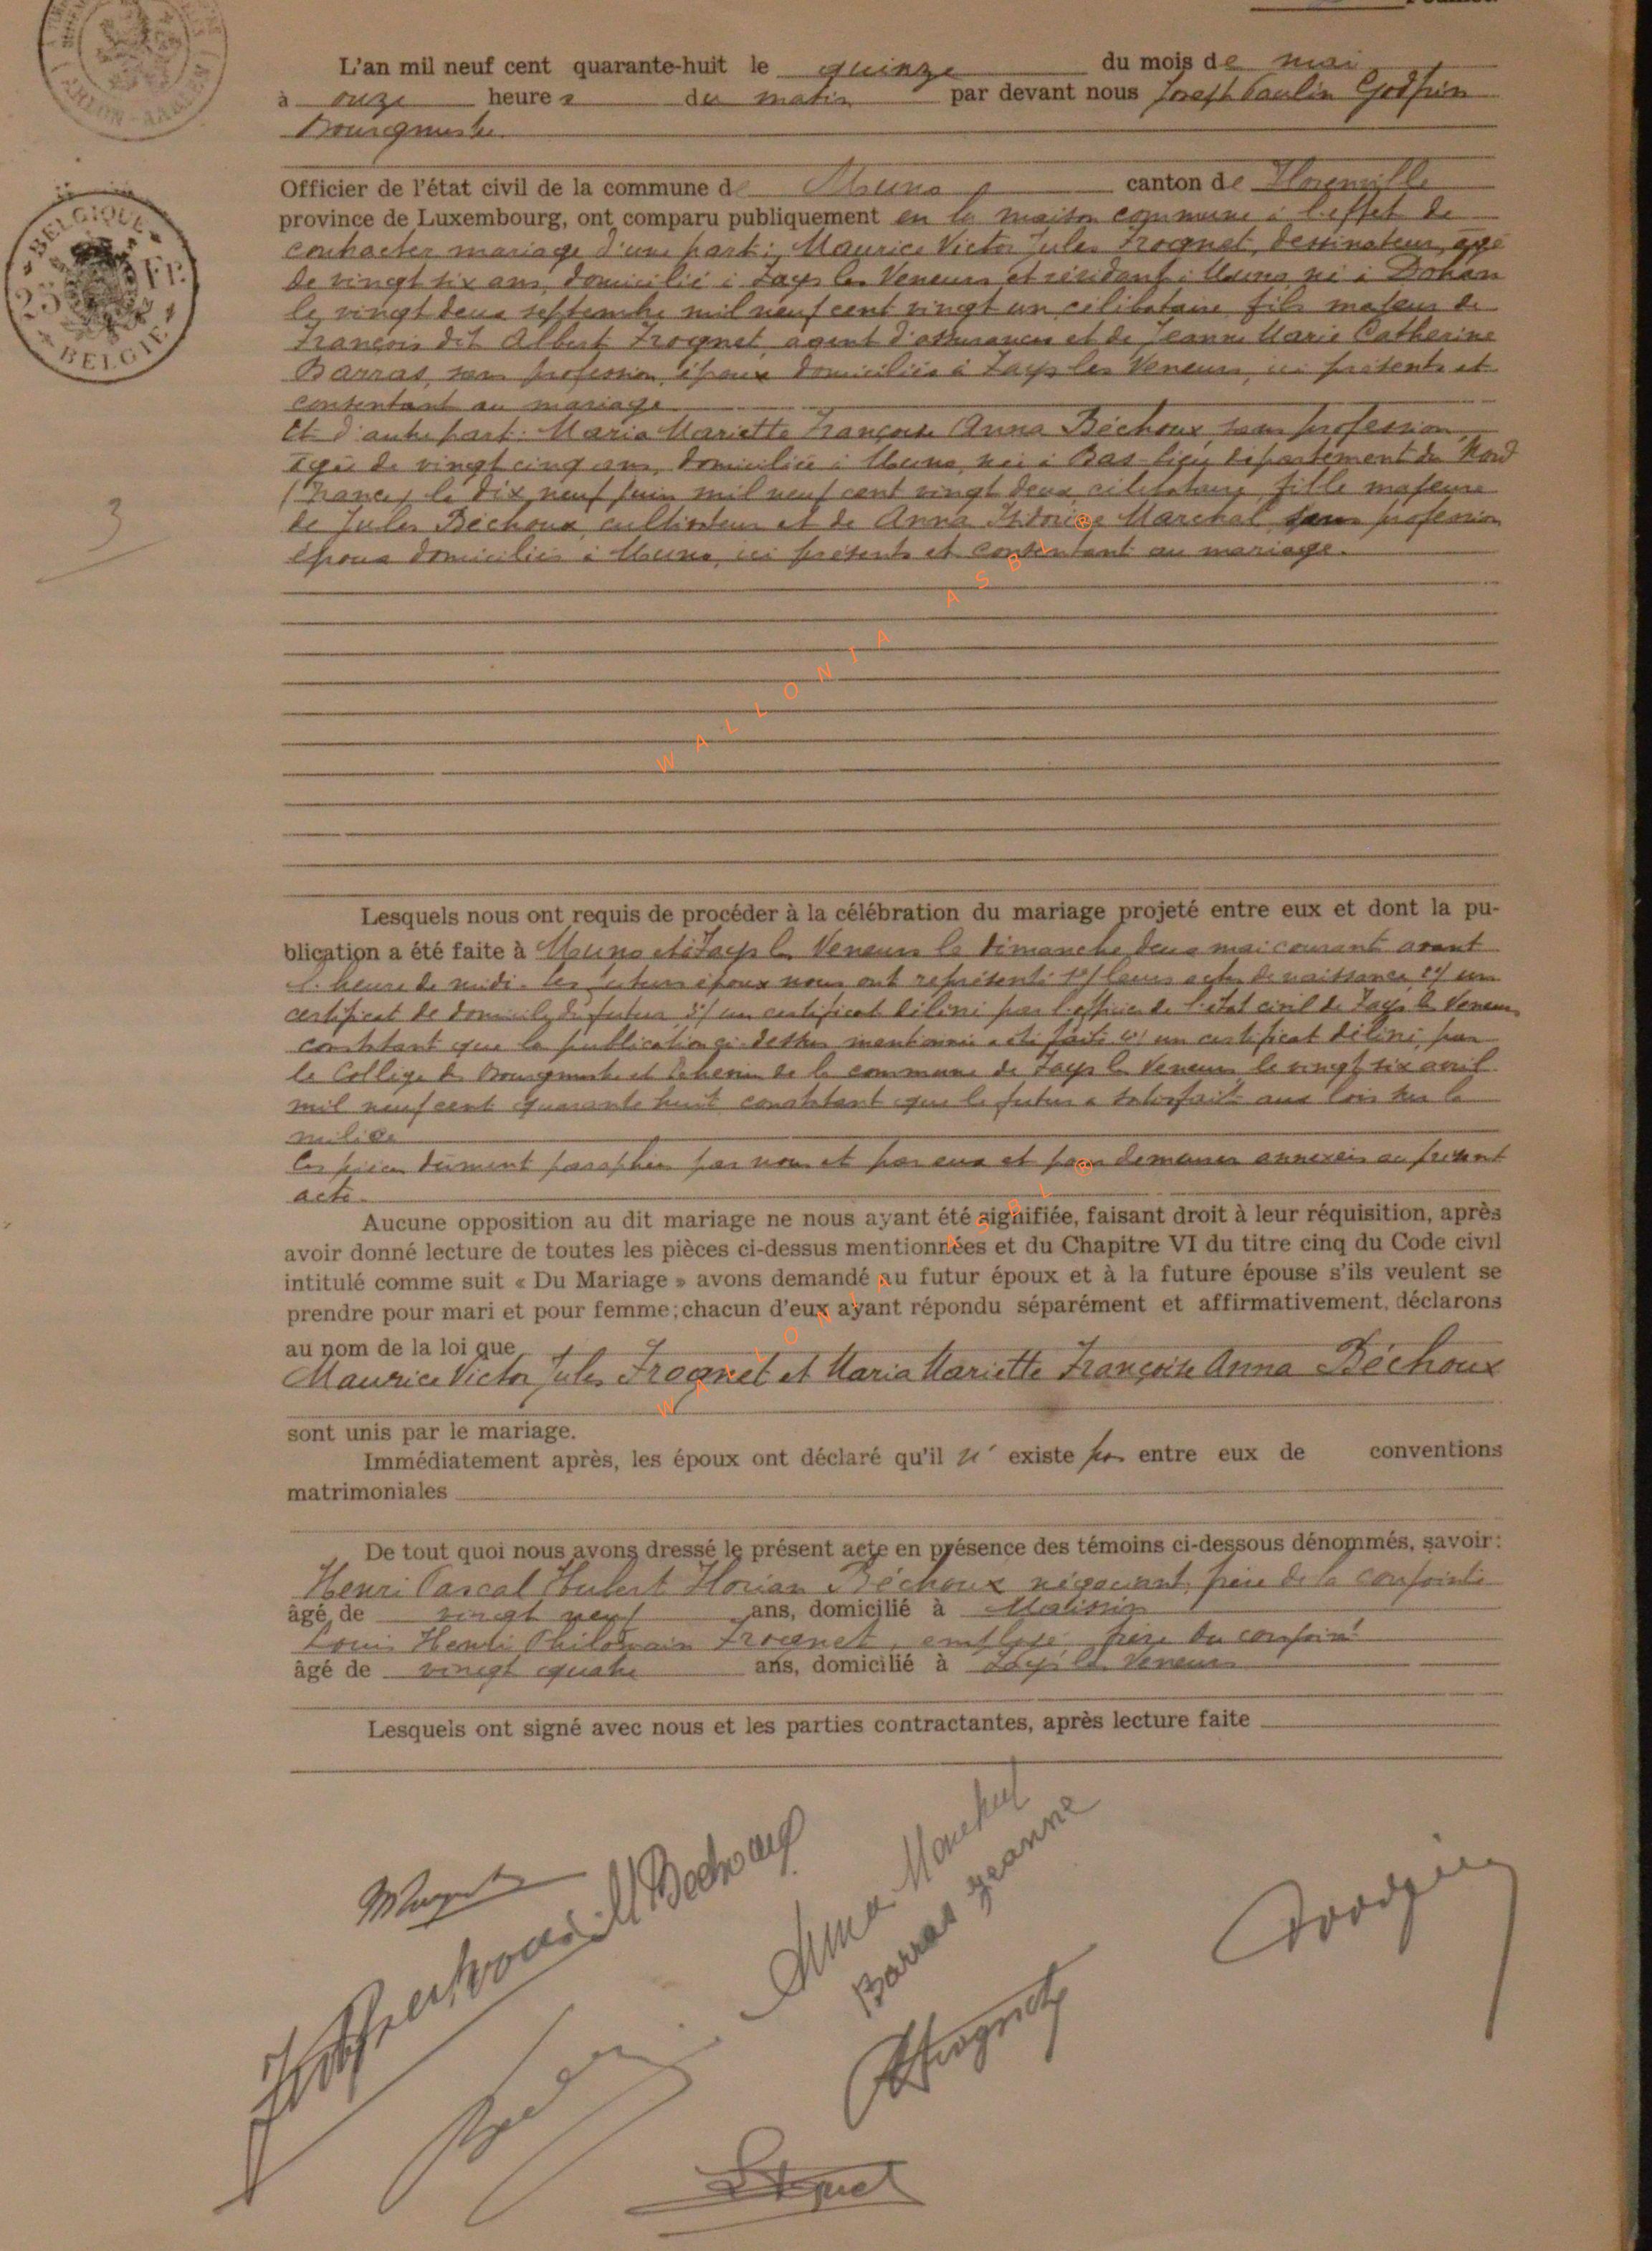 L'an mil neuf cent quarante-huit le quinze du mois de mai
à onze heures du matin par devant nous Joseph Paulin Godfrin
Bourgmestre
Officier de l'état civil de la commune de Muno canton de Florenville
province de Luxembourg, ont comparu publiquement en la maison commune à l'effet de
contracter mariage d'une part: Maurice Victor Jules Frognet, dessinateur, âgé
de vingt six ans, domicilié à Fays les Veneurs et résidant à Muno né à Dohan
le vingt deux septembre mil neuf cent vingt un célibataire fils majeur de
François dit Albert Frognet, agent d'assurances et de Jeanne Marie Catherine
Barras, sans profession, époux domiciliés à Fays les Veneurs, ici présents et
consentant au mariage
Et d'autre part: Maria Mariette Françoise Anna Béchoux, sans profession,
âgée de vingt cinq ans, domiciliée à Muno, née à Bas-Lieu département du Nord
(France) le dix neuf juin mil neuf cent vingt deux célibataire fille majeure
de Jules Béchoux, cultivateur et de Anna Marchal sans profession
époux domiciliés à Muno, ici présents et consentant au mariage.
WALLONIA ASBL ®
Lesquels nous ont requis de procéder à la célébration du mariage projeté entre eux et dont la pu-
blication a été faite à Muno et à Fays les Veneurs le dimanche deux mai courant avant
l'heure de midi. les futurs époux nous ont représenté 1°/ leurs actes de naissance 2°/ un
certificat de domicile du futur 3°/ un certificat délivré par l'officier de l'état civil de Fays les Veneurs
constatant que la publication ci-dessus mentionnée a été faite 4°/ un certificat délivré par
le Collège des Bourgmestre et Echevins de la commune de Fays les Veneurs le vingt six avril
mil neuf cent quarante huit constatant que le futur a satisfait aux lois sur la
milice
les pièces dûment paraphées par nous et par eux et pour demeurer annexées au présent
acte.
Aucune opposition au dit mariage ne nous ayant été signifiée, faisant droit à leur réquisition, après
avoir donné lecture de toutes les pièces ci-dessus mentionnées et du Chapitre VI du titre cinq du Code civil
intitulé comme suit « Du Mariage » avons demandé au futur époux et à la future épouse s'ils veulent se
prendre pour mari et pour femme; chacun d'eux ayant répondu séparément et affirmativement, déclarons
au nom de la loi que
Maurice Victor Jules Frognet et Maria Mariette Françoise Anna Béchoux
WALLONIA ASBL ®
sont unis par le mariage.
Immédiatement après, les époux ont déclaré qu'il n' existe pas entre eux de conventions
matrimoniales
De tout quoi nous avons dressé le présent acte en présence des témoins ci-dessous dénommés, savoir:
Henri Pascal Hubert Florian Béchoux négociant, frère de la conjointe
âgé de vingt neuf ans, domicilié à
Louis Henri Frognet, employé frère du conjoint
âgé de vingt quatre ans, domicilié à Fays les Veneurs
Lesquels ont signé avec nous et les parties contractantes, après lecture faite
M Bechoux
Anna Marchal
Barras Jeanne
Frognet
BELGIQUE
25 FR.
BELGIE
3
ARLON-AARLEN